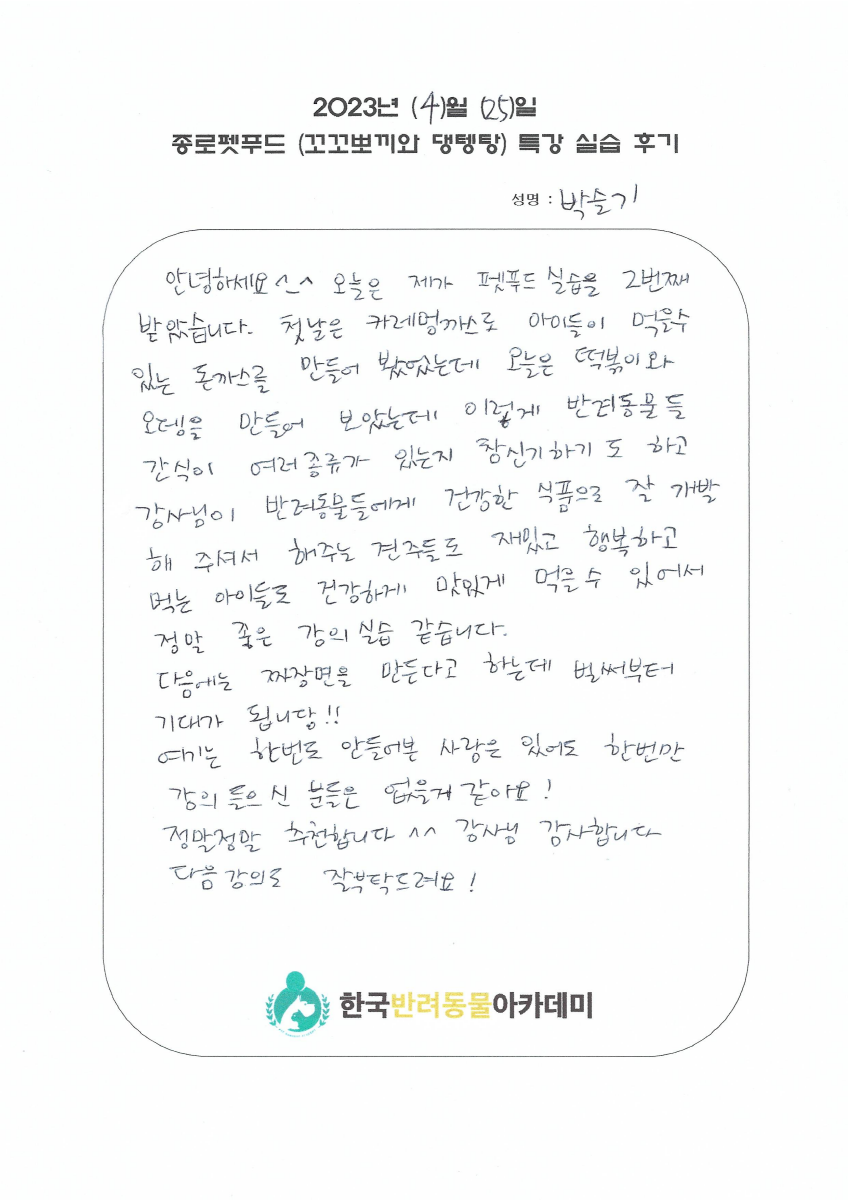 2023년 (4)월 (25)일
종로펫푸드 (꼬꼬뽀끼와 댕텡탕) 특강 실습 후기
성명 : 박슬기
안녕하세요 ^_^ 오늘은 제가 펫푸드 실습을 2번째
받았습니다. 첫날은 카레멍까스로 아이들이 먹을수
있는 돈까스를 만들어 봤었는데 오늘은 떡볶이와
오뎅을 만들어 보았는데 이렇게 반려동물들
간식이 여러종류가 있는지 참신기하기 도 하고
강사님이 반려동물들에게 건강한 식품으로 잘 개발
해 주셔서 해주는 견주들도 재밌고 행복하고
먹는 아이들도 건강하게 맛있게 먹을 수 있어서
정말 좋은 강의 실습 같습니다.
다음에는 짜장면을 만든다고 하는데 벌써부터
기대가 됩니당!!
여기는 한번도 안들어본 사람은 있어도 한번만
강의 들으신 분들은 없을거 같아요!
정말정말 추천합니다 ^^ 강사님 감사합니다
다음강의도 잘부탁드려요!
한국반려동물아카데미